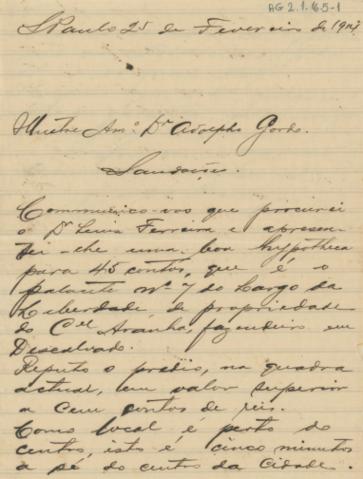 AG 2.1.65-1
S. Paulo 25 de Fevereiro de 19
Illustre Amº Dr Adolpho Gordo.
Saudações.
Communico-vos que procurei
o Dr Ferreira e apresen-
tei-lhe uma boa hypotheca
para 45 contos, que é o
palacete nº 7 do Largo da
Liberdade, de propriedade
do Cel Aranha, fazendeiro em
Descalvado.
Reputo o predio, na quadra
actual, um valor superior
a cem contos de reis.
Como local é perto do
centro, isto é cinco minutos
a pé do centro da Cidade.